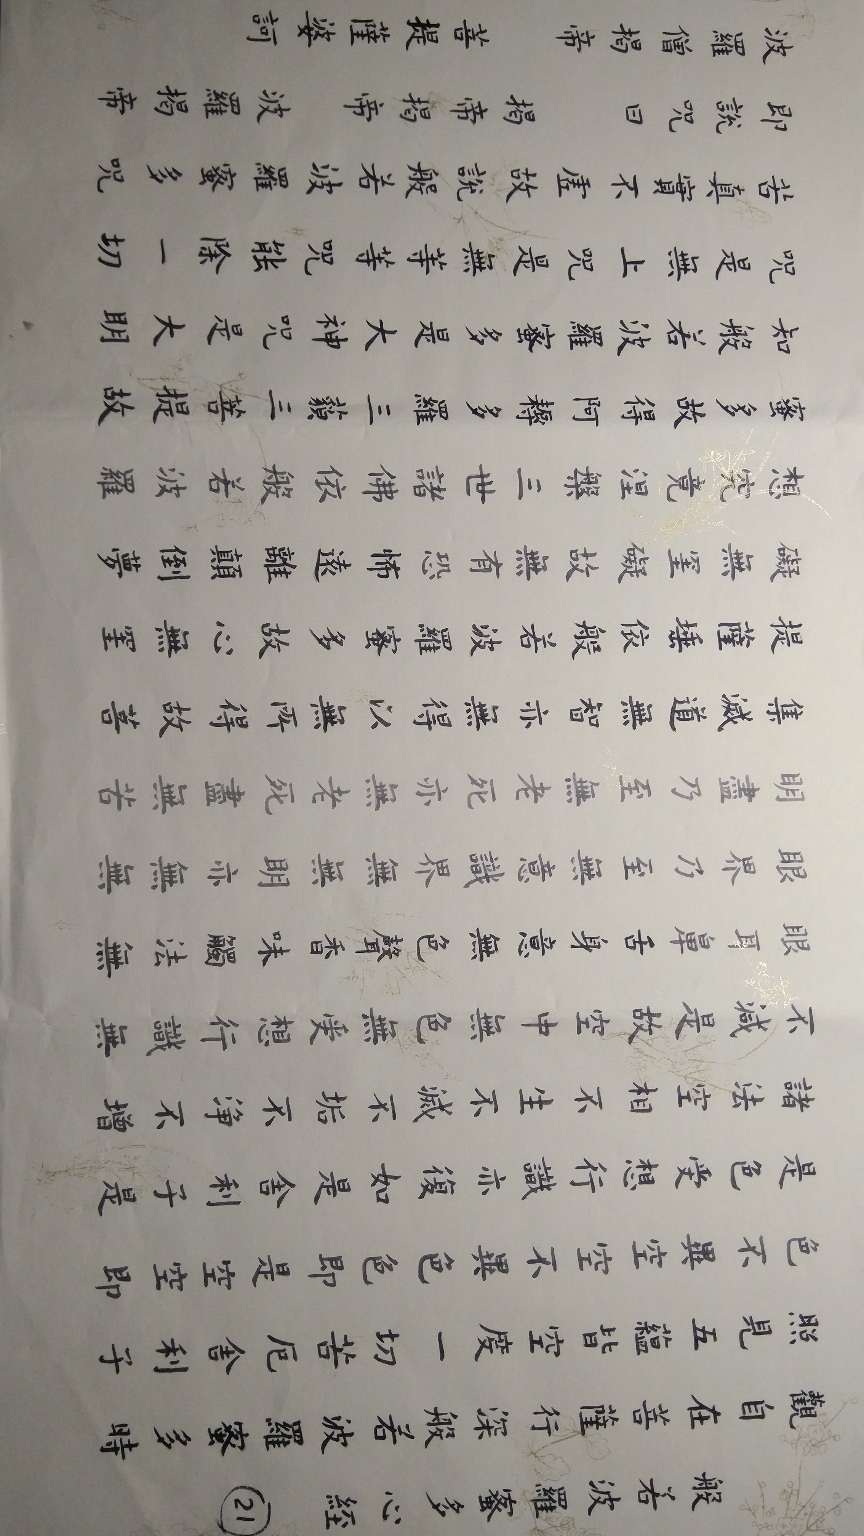 般若波羅蜜多心経 21
觀自在菩薩行深般若波羅蜜多時
照見五蘊皆空度一切苦厄舍利子
色不異空空不異色色即是空空即
是色受想行識亦復如是舍利子是
諸法空相不生不滅不垢不淨不增
不減是故空中無色無受想行識無
眼耳鼻舌身意無色聲香味觸法無
眼界乃至無意識界無無明亦無無
明盡乃至無老死亦無老死盡無苦
集滅道無智亦無得以無所得故菩
提薩埵依般若波羅蜜多故心無罣
礙無罣礙故無有恐怖遠離顛倒夢
想究竟涅槃三世諸佛依般若波羅
蜜多故得阿耨多羅三藐三菩提故
知般若波羅蜜多是大神咒是大明
咒是無上咒是無等等咒能除一切
苦真實不虛故說般若波羅蜜多咒
即說咒曰 揭帝揭帝 波羅揭帝
波羅僧揭帝 菩提薩婆訶